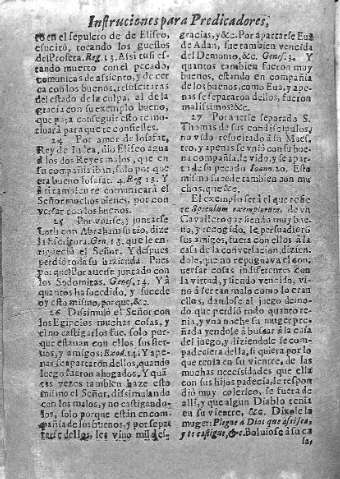 Instruciones para Predicadores,
to en el sepulcro de de Eliseo,
resucitó, tocando los guessos
del Profeta. Reg. 13. Assi tu si es-
tando muerto con el pecado,
comunicas de assiento, y de cer
ca con los buenos, resucitaras
del estado de la culpa, al de la
gracia con su exemplo bueno,
que para conseguir esto te mo-
tiuara para que te confiesses.
24 Por amor de Iosafat,
Rey de Iudea, dio Eliseo agua
à los dos Reyes malos, que en
su compañia iban, solo por que
era bueno Iosafat. 4. Reg. 13. Y
à ti tambien te comunicará el
Señor muchos bienes, por con
versar con los buenos.
25 Por juntarse
Loth con Abraham su tio, dize
la historia. Gen. 13. que le en-
riqueció el Señor. Y despues
perdió toda su hazienda. Pues
porque? Por auerse juntado con
los Sodomitas. Genes. 14. Y à
quantos ha sucedido, y sucede
oy esto mismo, porque, &c.
26 Dissimuló el Señor con
los Egipcios muchas cosas, y
no castigarlos fue, solo porque
estauan con ellos sus sieruos,
y amigos. Exod. 14. Y apenas
se apartaron dellos, quando
luego fueron ahogados. Y quantas
vezes tambien haze esto
mismo el Señor, dissimulando
con los malos, y no castigandolos,
solo porque están en compañia
de los buenos, y por apartarse
dellos, les vino mil des-
gracias, &c. Por apartarse Eua
de Adan, fue tambien vencida
del Demonio, &c. Genes. 3. Y
quantos tambien fueron muy
buenos, estando en compañia
de los buenos, como Eua, y apenas
se apartaron dellos, fueron
malissimos: &c.
27 Por estar separado S.
Thomás de sus condiscipulos,
no vido resucitado à su Maestro,
y apenas se vnió con su buena
compañia, le vido, y se apartó
de su perdido. Ioann. 20. Esto
mismo sucede tambien con muchos,
que &c.
El exemplo será el que refiere
Speculum exemplorum, de vn
Cauallero que siendo muy bueno,
y recogido, le persuadieron
sus amigos, fuera con ellos à la
casa de la conversacion diziendole,
que no repugnaua el conversar
cosas indiferentes con
la virtud, y siendo vencido, vino
à ser tan malo como lo eran
ellos, dandose al juego demodo
que perdió todo quanto tenia,
y vna noche su muger preñada
yendole à buscar à la casa
del juego, diziendole se compadeciera
della, si quiera por lo
que tenia en su vientre, de las
muchas necessidades que ella
con sus hijos padecia, le respondió
muy colerico, se fuera de
allì, y que algun Diablo tenia
en su vientre, &c. Dixole la
muger: Plegue à Dios que assi sea,
y te castigue, &c. Boluiose à su ca
sa,